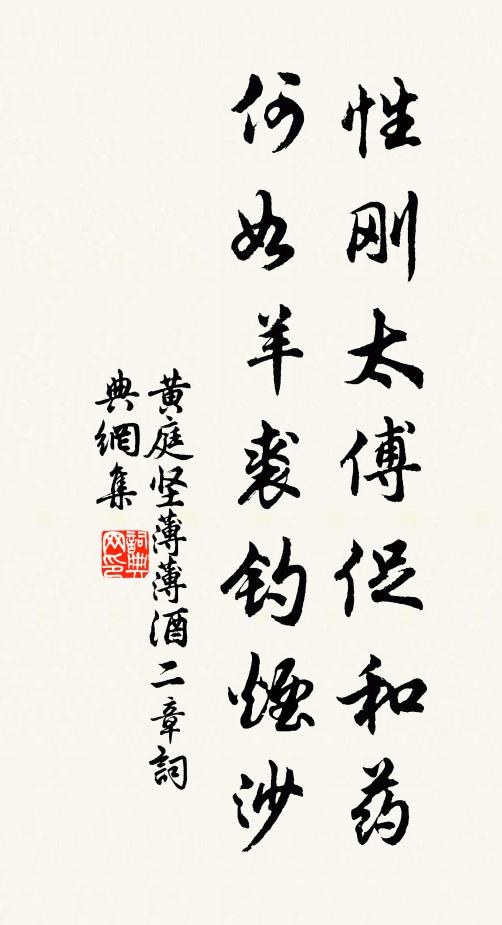 性刚太傅促和药
何如羊裘钓烟沙
黄庭坚薄薄酒二章詞
典網集
詞典网印